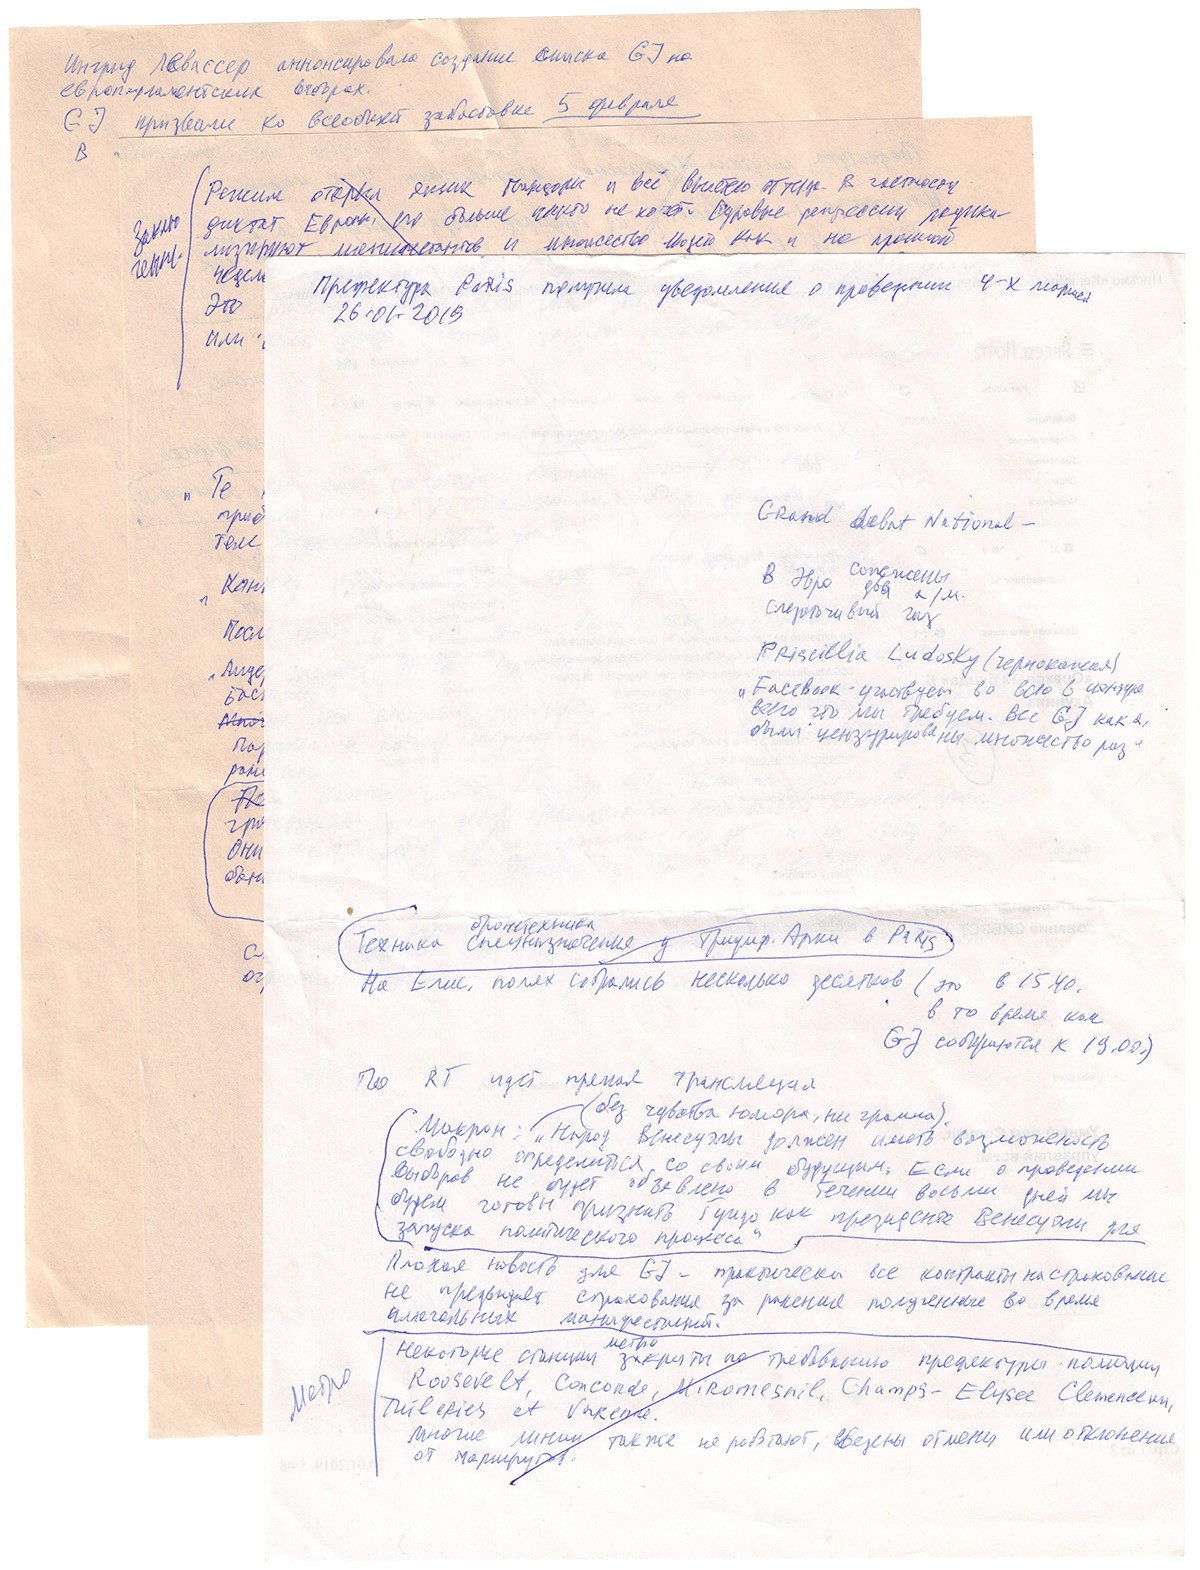 Ингрид Левассер анонсировала создание списка GJ на
европарламентских выборах.
GJ призвали ко всеобщей забастовке 5 февраля
В "
Заклю
чение.
Режим открыл ящик Пандоры и всё вышло оттуда. В частности
диктат Европы, его больше никто не хочет. Суровые репрессии радика-
лизируют манифестантов и множество людей как и на прошлой
неделе
Это
или
" Те
Тем
"
После
"Лидер
Префектура Paris получила уведомление о проведении 4-х маршей
26-01-2019
Grand debat National –
В Эвро сожжены
два а/м.
слезоточивый газ
Priscillia Ludosky (чернокожая)
"Facebook - участвует во всю в цензуре
всего что мы требуем. Все GJ как я,
были цензурированы множество раз"
бронетехника
Техника спецназначения у Триумф. Арки в Paris
На Елис. полях собрались несколько десятков (это в 15.40.
в то время как
GJ собираются к 19.00.)
По RT идет прямая трансляция
(без чувства юмора, ни грамма).
Макрон: "Народ Венесуэлы должен иметь возможность
свободно определиться со своим будущим. Если о проведении
выборов не будет объявлено в течении восьми дней мы
будем готовы признать Гуидо как президента Венесуэлы для
запуска политического процесса"
Плохая новость для GJ - практически все контракты на страхование
не предвидят страхования за ранения полученные во время
нелегальных манифестаций.
Метро
Некоторые станции метро закрыты по требованию префектуры полиции
Roosevelt, Concorde, Miromesnil, Champs-Elysee Clemenceau,
Tuileries et Varenne.
многие линии также не работают, введены отмены или отклонения
от маршрутов.